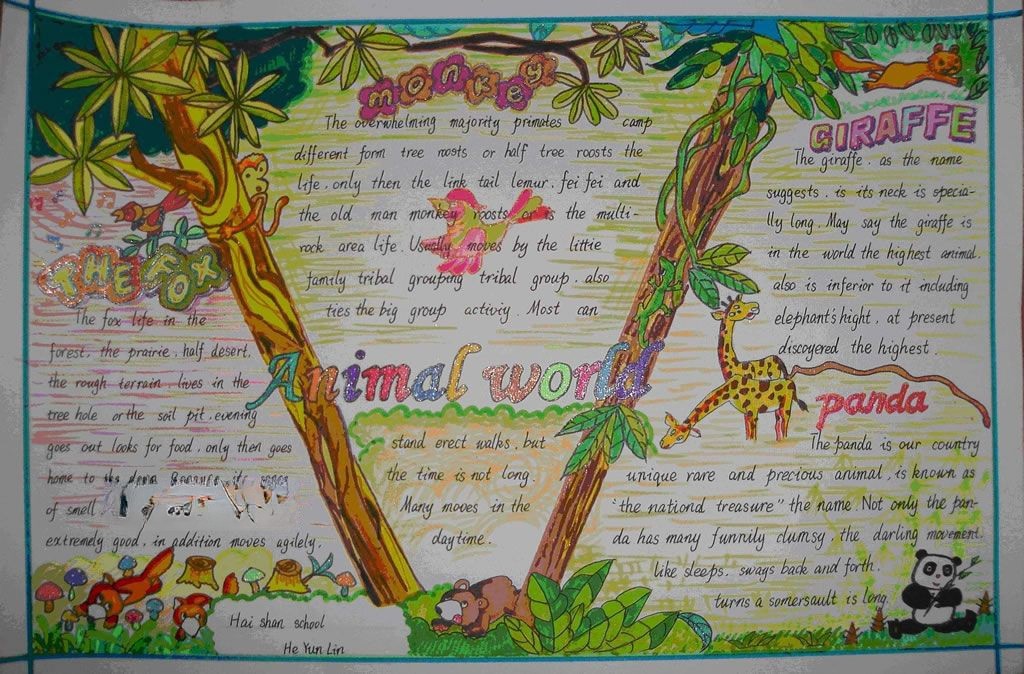 monkey
The overwhelming majority primates camp
different form tree roosts or half tree roosts the
life, only then the link tail lemur. fei fei and
the old man monkey roosts or is the multi-
rock area life. Usually moves by the little
family tribal grouping tribal group. also
ties the big group activiy. Most can
Animal world
stand erect walks, but
the time is not long.
Many moves in the
daytime.
THE FOX
The fox life in the
forest, the prairie, half desert,
the rough terrain, lives in the
tree hole or the soil pit, evening
goes out looks for food, only then goes
home to
of smell
extremely good, in addition moves agilely.
Hai shan school
He Yun Lin
GIRAFFE
The giraffe, as the name
suggests, is its neck is specia-
lly long. May say the giraffe is
in the world the highest animal.
also is inferior to it including
elephant's hight, at present
discoyered the highest.
panda
The panda is our country
unique rare and precious animal, is known as
"the nationd treasure" the name. Not only the pan-
da has many funnily clumsy, the darling movement.
like sleeps. sways back and forth.
turns a somersault is long.